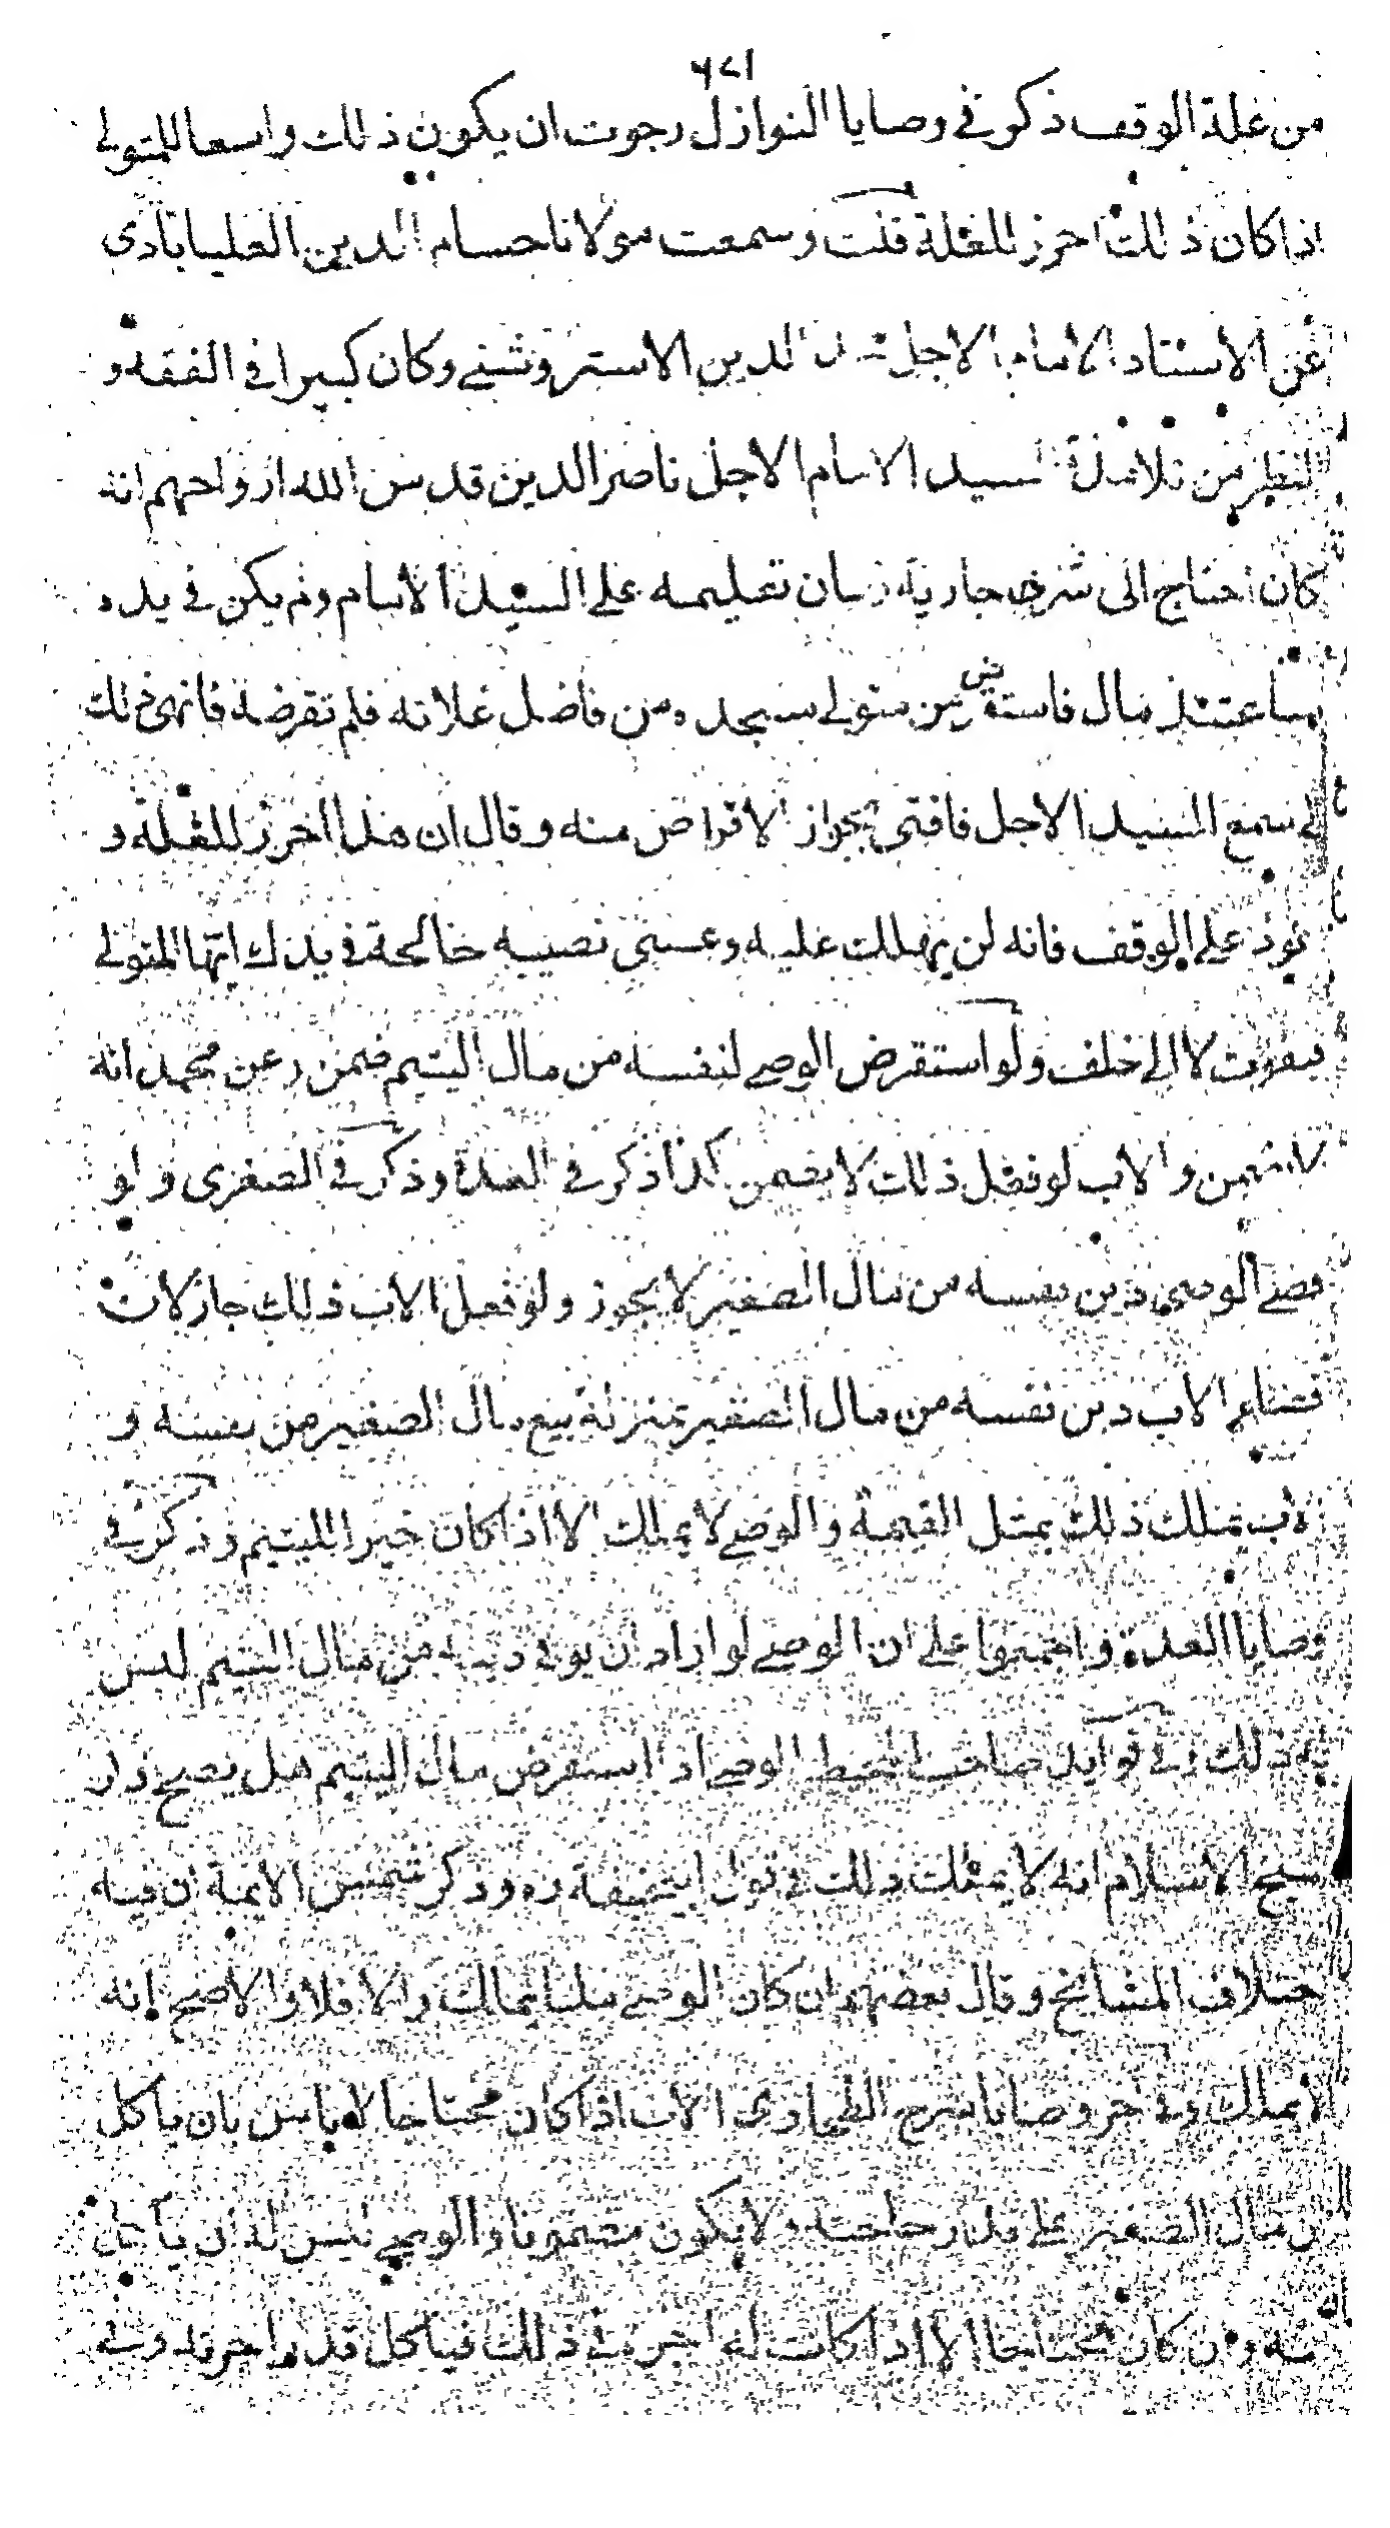 من غلة الوقف ذكر في وصايا النوازل رجوت ان يكون ذلك واسعا للمتولي
اذا كان ذلك احرز للغلة قلت وسمعت مولانا حسام الدين العليابادي
عن الاستاد الامام الاجل الدين الاستروشني وكان كبيرا في الفقه و
النظر من تلامذة السيد الامام الاجل ناصر الدين قدس الله ارواحهم انه
كان احتاج الى شرى جارية زمان تعليمه على السيد الامام ولم يكن في يده
ساعتئذ مال فاستقرض من متولي مسجده من فاضل غلاته فلم تقرضه فانهى ذلك
الى سمع السيد الاجل فافتى بجواز الاقراض منه وقال ان هذا احرز للغلة و
على الوقف فانه لن يهلك عليه وعسى نصيبه في يدك ايها المتولي
فيفوت لا الى خلف ولو استقرض الوصي لنفسه من مال اليتيم ضمن وعن محمد انه
لا يضمن والاب لو فعل ذلك لا يضمن كذا ذكر في العدة وذكر في الصغرى ولو
قضى الوصي دين نفسه من مال الصغير لا يجوز ولو فعل الاب ذلك جاز لان
قضاء الاب دين نفسه من مال الصغير بمنزلة بيع مال الصغير من نفسه و
الاب يملك ذلك بمثل القيمة والوصي لا يملك الا اذا كان خيرا لليتيم وذكر في
وصايا العدة واجمعوا على ان الوصي لو اراد ان يوفي دينه من مال اليتيم ليس
له ذلك وفي فوايد صاحب المحيط الوصي اذا استقرض مال اليتيم هل يصح ذكر
شيخ الاسلام انه لا يملك ذلك في قول ابيحنيفة ره وذكر شمس الايمة ان فيه
اختلاف المشايخ وقال بعضهم ان كان الوصي مليا يملك والا فلا والاصح انه
لا يملك وفي اخر وصايا شرح الطحاوي الاب اذا كان محتاجا لا باس بان ياكل
من مال الصغير على قدر حاجته ولا يكون مضمونا والوصي ليس له ان ياكل
منه وان كان محتاجا الا اذا كانت له اجرة في ذلك فياكل قدر اجرته وفي